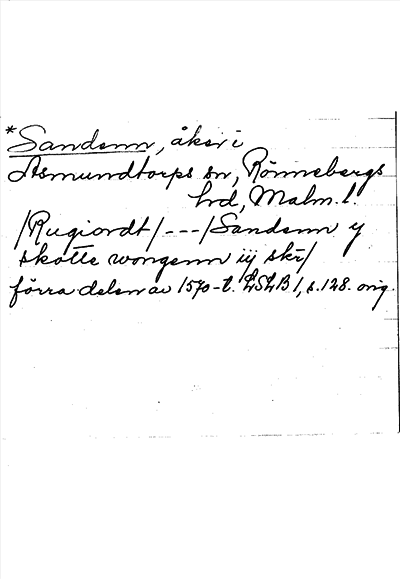 *Sandenn, åker i
Asmundtorps sn, Rönnebergs
hrd, Malm. l.
/Rugiordt/---/Sandenn y
skotte wongenn iij skr/
förra delen av 1570-t. LSLB 1, s. 128. orig.